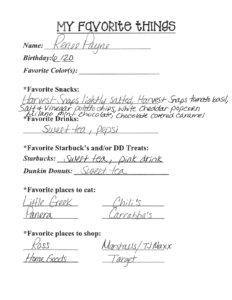 MY FAVORITE THINGS
Name: Renee Payne
Birthday: 6/20
Favorite Color(s):
*Favorite Snacks:
Harvest Snaps lightly salted, Harvest Snaps tomato basil,
Salt & Vinegar potato chips, white cheddar popcorn
Milano mint chocolate, chocolate covered caramel
*Favorite Drinks:
Sweet tea, pepsi
*Favorite Starbuck's and/or DD Treats:
Starbucks: Sweet tea, pink drink
Dunkin Donuts: Sweet tea
*Favorite places to eat:
Little Greek Chili's
Panera Carrabba's
*Favorite places to shop:
Ross Marshalls/TJ Maxx
Home Goods Target